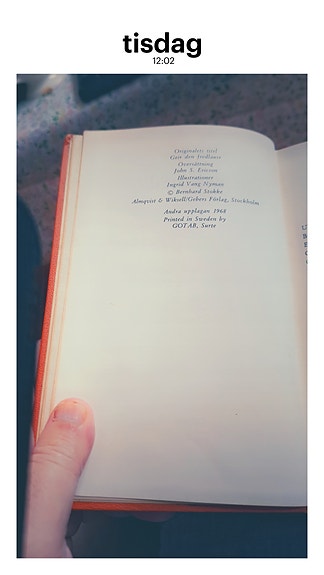 tisdag
12:02
Originalets titel
Översättning
John S. Ericson
Illustrationer
Ingrid Vang Nyman
© Bernhard Stokke
Almqvist & Wiksell/Gebers Förlag, Stockholm
Andra upplagan 1968
Printed in Sweden by
GOTAB, Surte